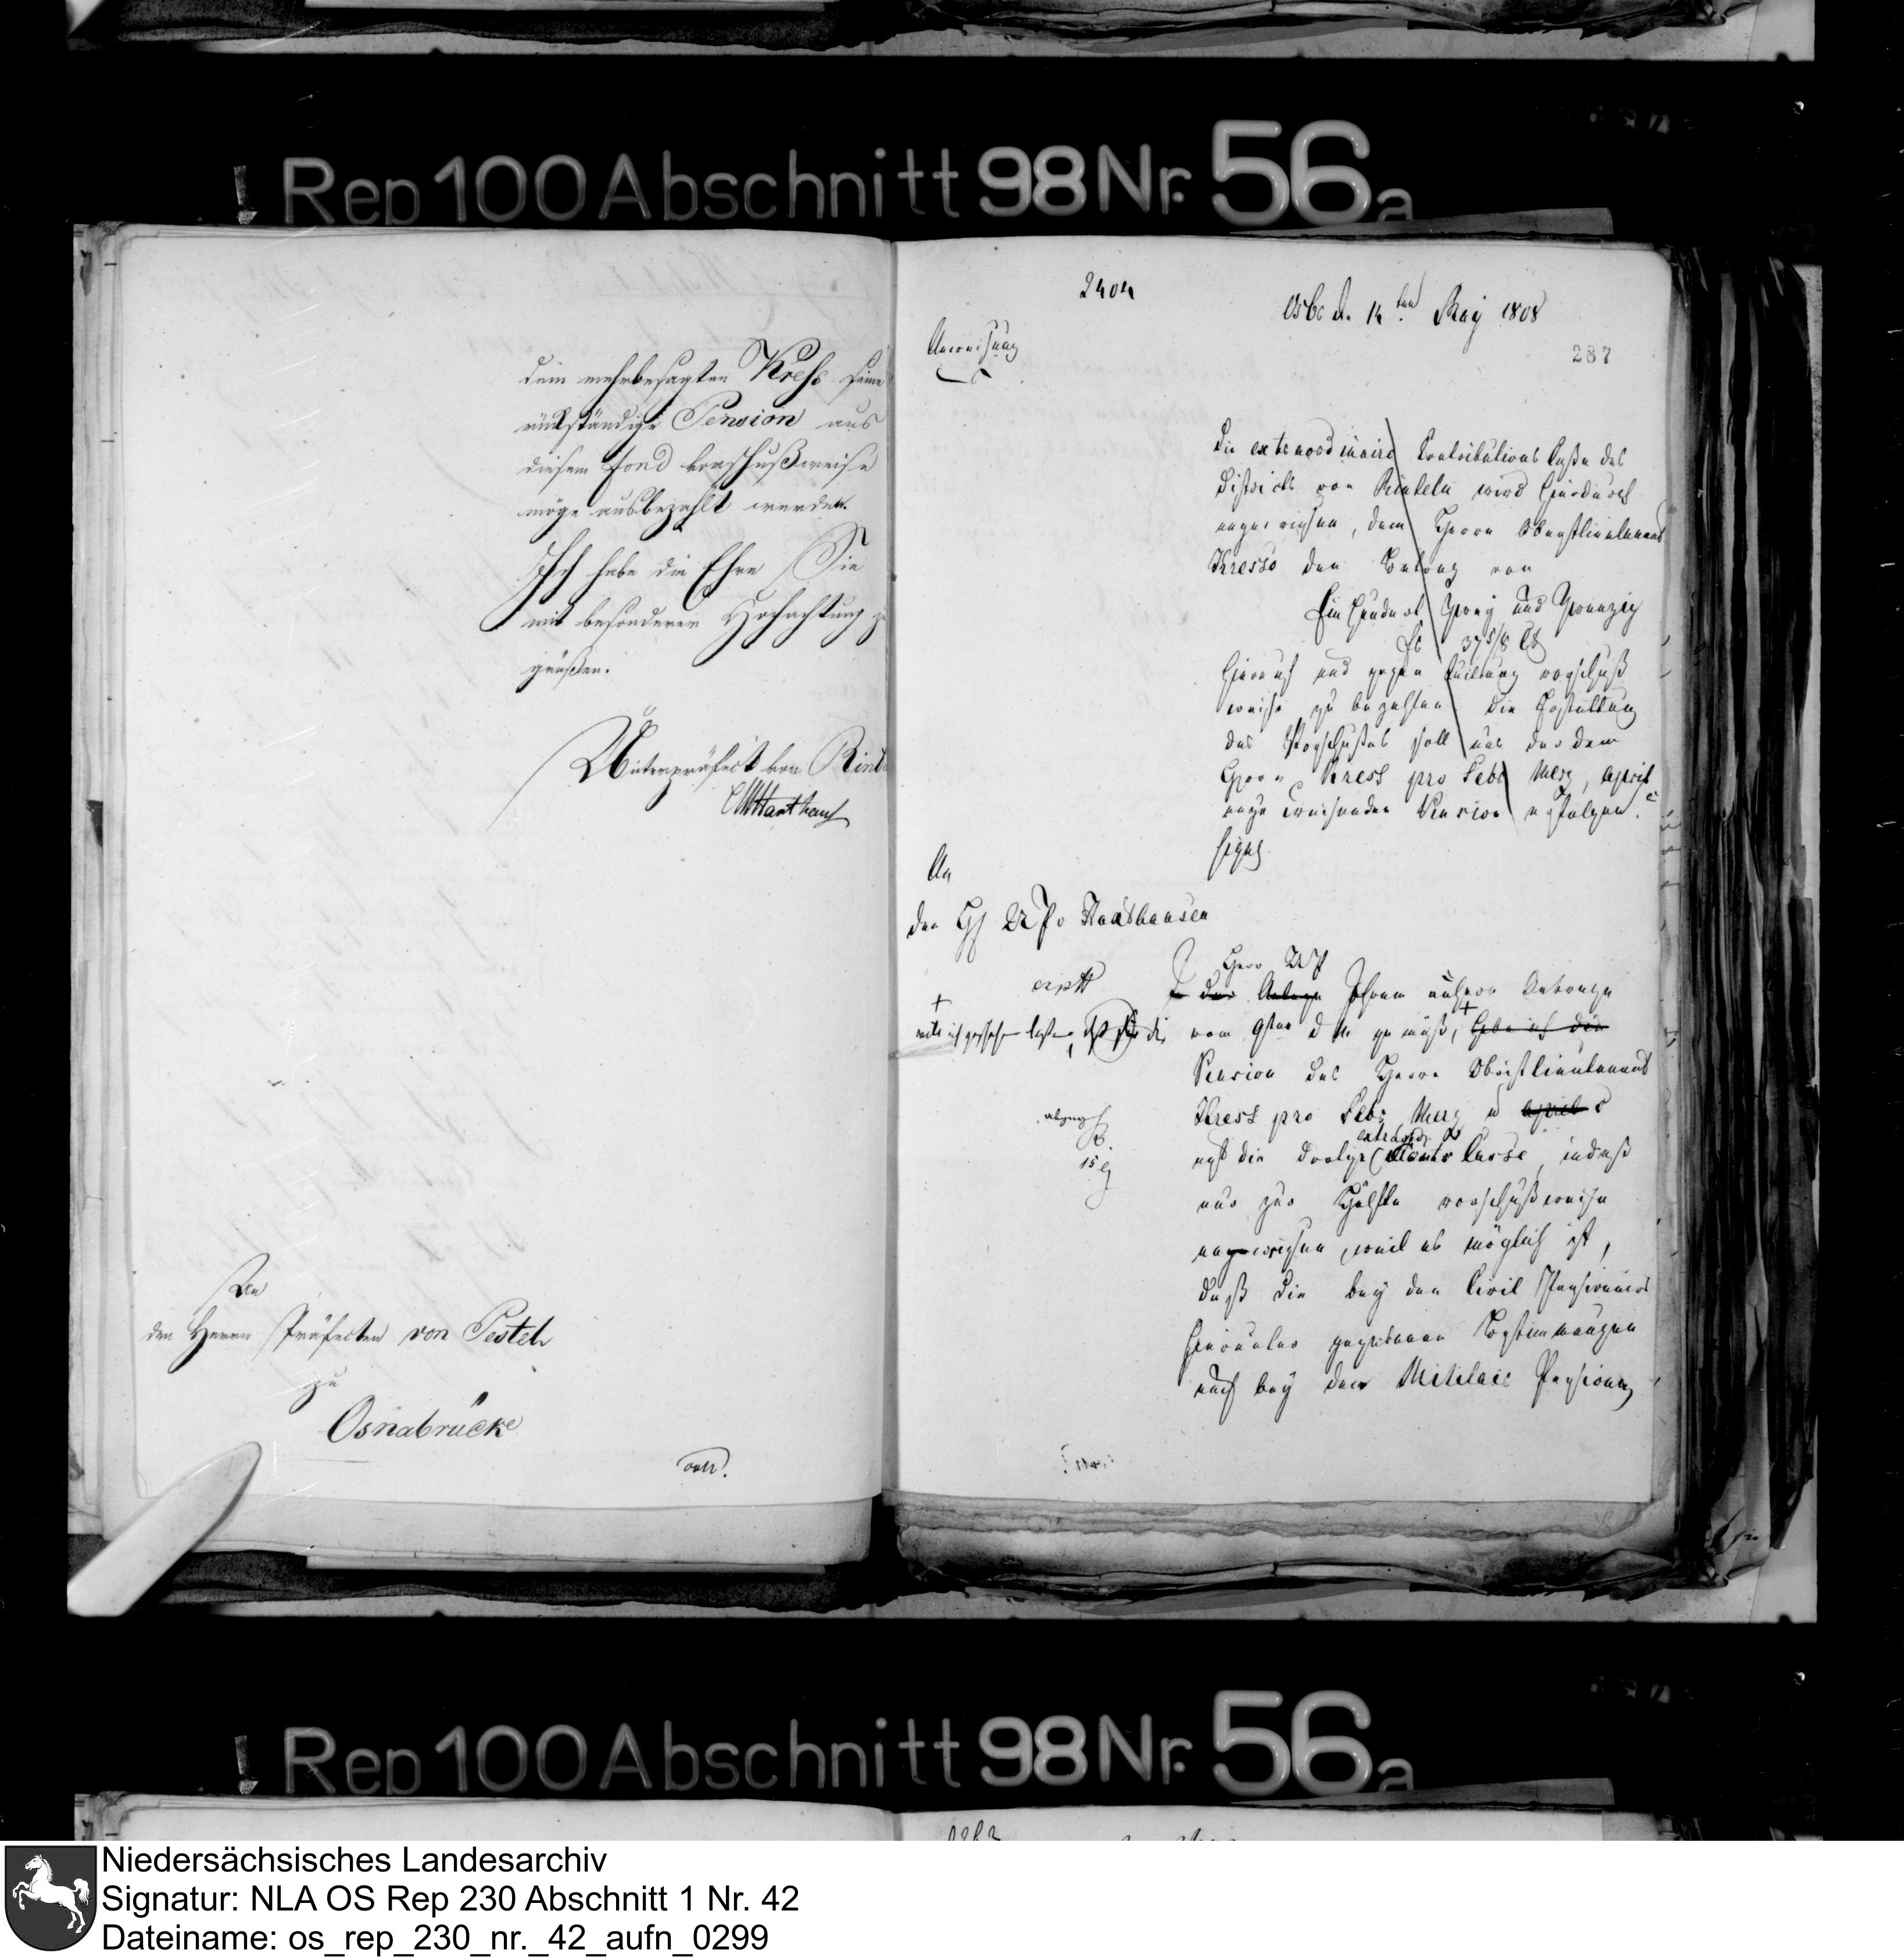 ! Rep 100 Abschnitt 98 Nr. 56a
dem mehrbesagten Kress seine
rückständige Pension aus
diesem Fond vorschußweise
möge ausbezahlt werden.
Ich habe die Ehre Sie
mit besonderer Hochachtung zu
grüßen.
Unterpräfect von Rint
An
den Herrn Präfecten von Pestel
zu
Osnabrück
2404
Osbr. d. 14ten May 1808
287
Anweisung
Die extraordinaire Contributions Casse des
Districts von Rinteln wird hierdurch
angewiesen, dem Herrn Obristlieutenant
Kress den Betrag von
Ein hundert zwey und zwanzig
37 5/8
hierauf und gegen Quittung vorschuß
weise zu bezahlen. Die Erstattung
des Vorschußes soll aus der dem
Herrn Kress pro Febr Merz, April
anzuweisenden Pension erfolgen.
An
den H
Herr UPf
In der Anlage Ihrem Antrage
vom 9ten d M gemäß, habe ich die
Pension des Herrn Obristlieutenants
Kress pro Febr Merz u April
auf die dortige extraord. Casse, indeß
nur zur Hälfte vorschußweise
angewiesen, weil es möglich ist,
daß die bey den Civil Pensionairs
hierunter gegebenen Bestimmungen
auch bey den Militair Pensionen
! Rep 100 Abschnitt 98 Nr. 56a
Niedersächsisches Landesarchiv
Signatur: NLA OS Rep 230 Abschnitt 1 Nr. 42
Dateiname: os_rep_230_nr._42_aufn_0299